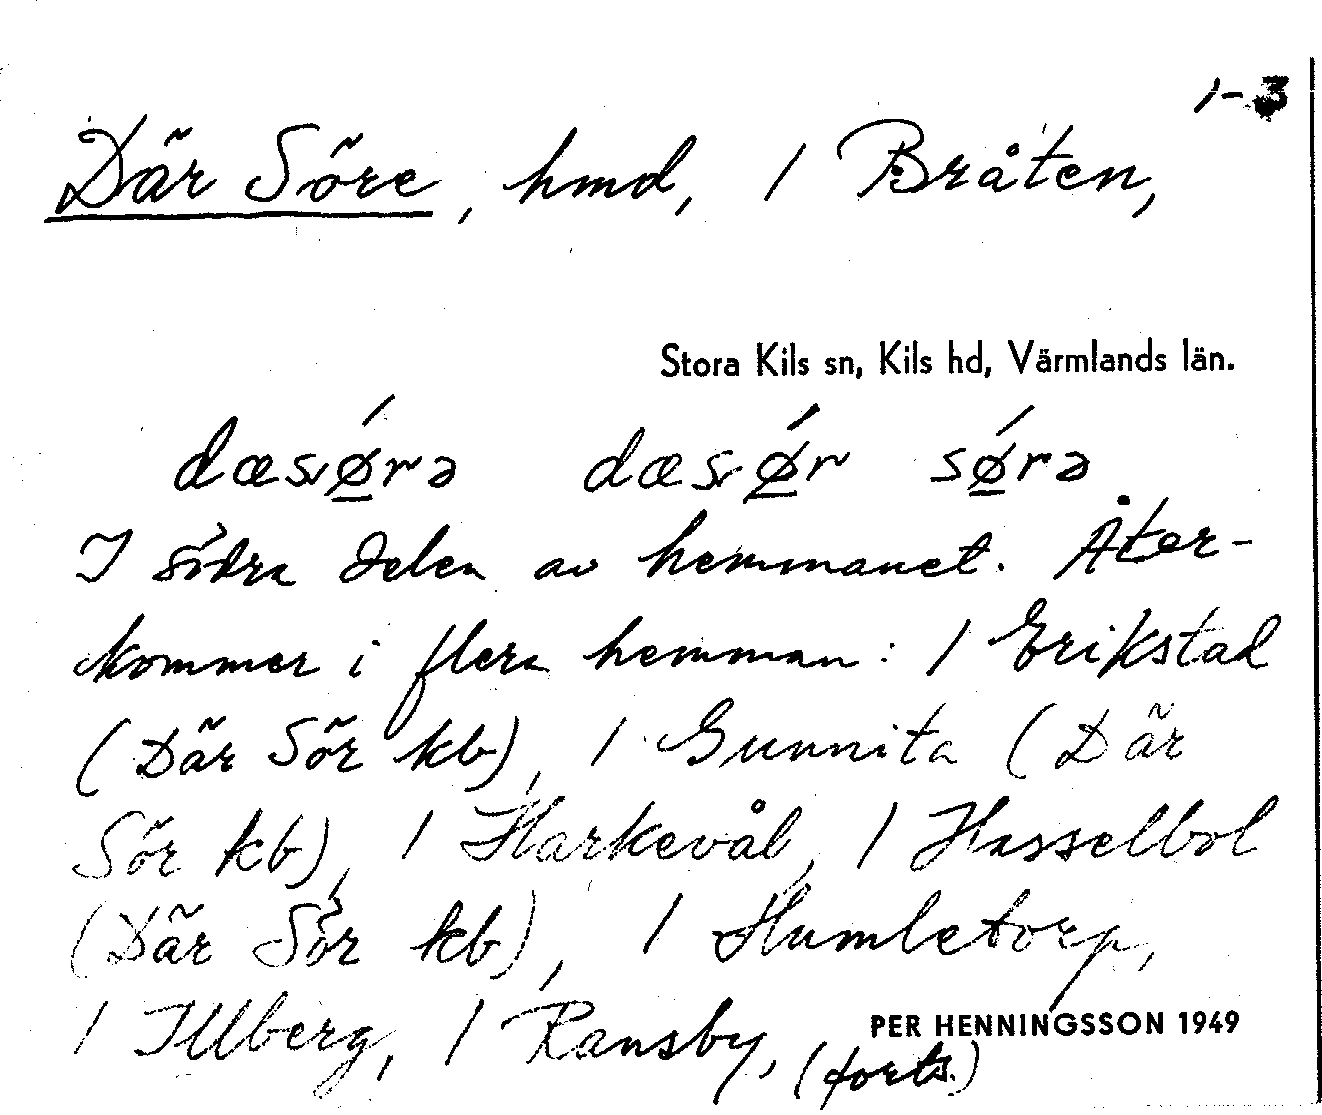 1-3
Där Söre, hmd, / Bråten,
Stora Kils sn, Kils hd, Värmlands län.
dæsǿ̠rə dæsǿ̠r sǿ̠rə
I södra delen av hemmanet. Åter-
kommer i flera hemman: / Erikstad
(Där Sör kb), / Gunnita (Där
Sör kb), / Harkevål, / Hasselbol
(Där Sör kb), / Humletorp,
/ Illberg, / Ransby,
PER HENNINGSSON 1949
(forts.)